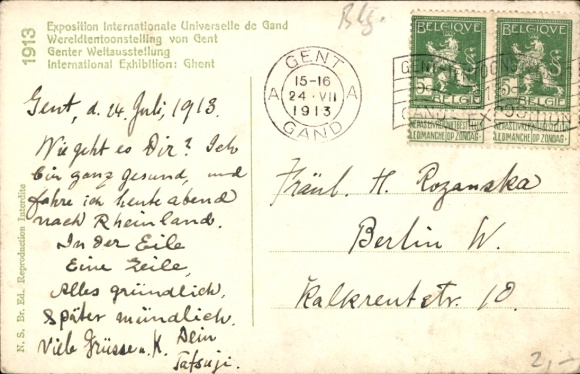 1913
Exposition Internationale Universelle de Gand
Wereldtentoonstelling von Gent
Genter Weltausstellung
International Exhibition: Ghent
Blg.
GENT
15-16
A 24·VII A
1913
GAND
BELGIQUE BELGIQUE
5c 5c
BELGIË BELGIË
NE PAS LIVRER
LE DIMANCHE OP ZONDAG NIET BESTELLEN
GAND EXPOSITION
Gent, d. 24. Juli, 1913.
Wie geht es Dir? Ich
bin ganz gesund, und
fahre ich heute abend
nach Rheinland.
In der Eile
Eine Zeile,
Alles gründlich,
Später mündlich.
Viele Grüsse u. K. Dein
Tatsuji.
Fräul. H. Rozanska
Berlin W.
Kalkreutstr. 10.
N. S. Br. Ed. Reproduction Interdite
2,-